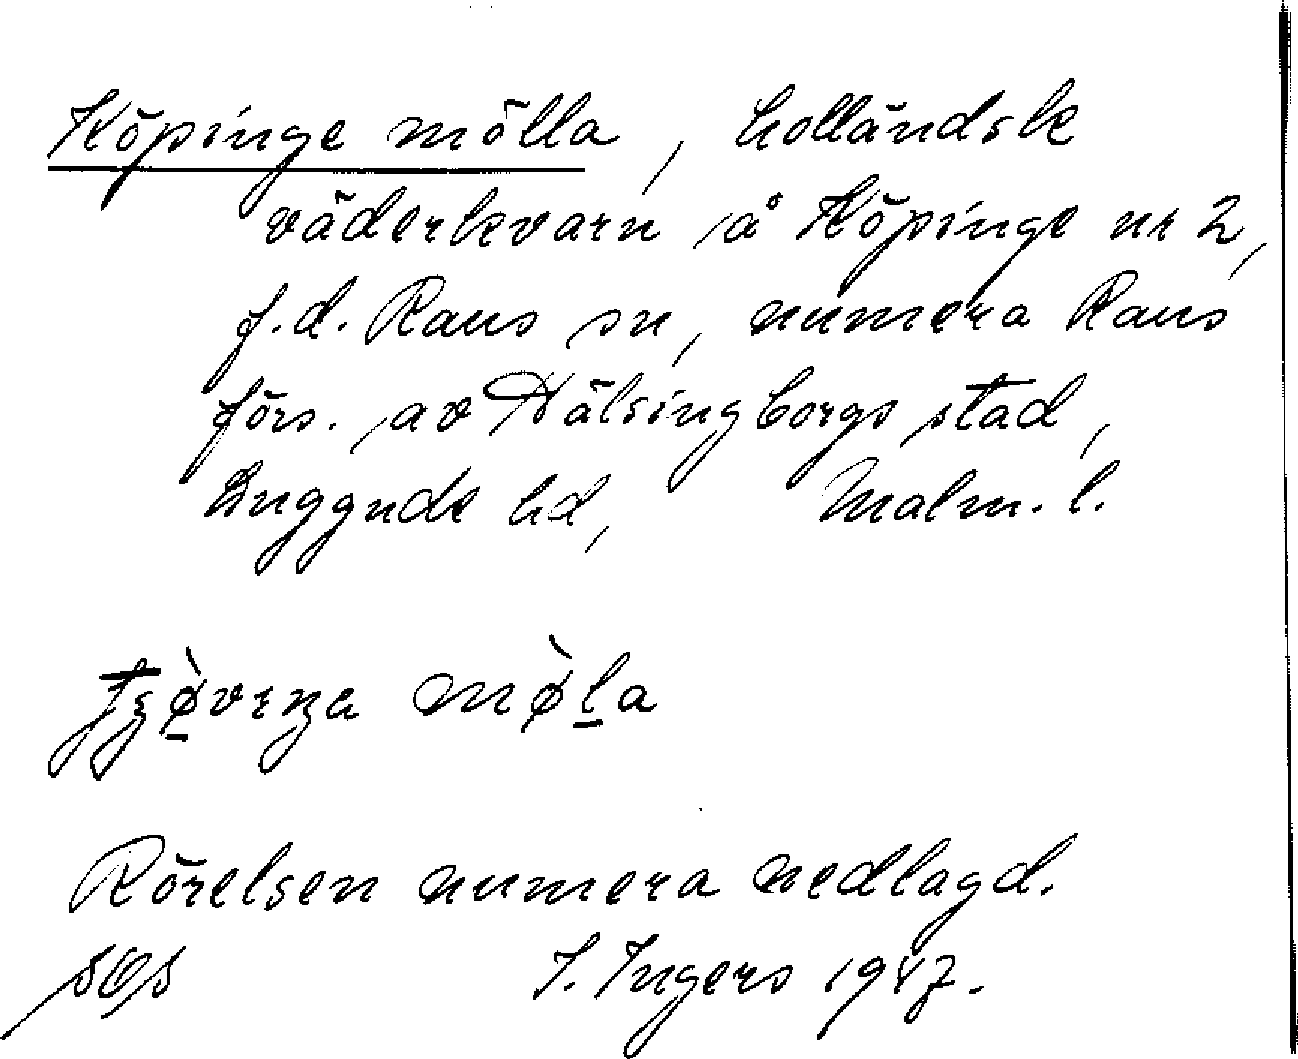 Köpinge mölla, holländsk
väderkvarn å Köpinge nr 2,
f.d. Raus sn, numera Raus
förs. av Hälsingborgs stad,
Luggude hd, Malm. l.
mø̀la
Rörelsen numera nedlagd.
I. Ingers 1947.